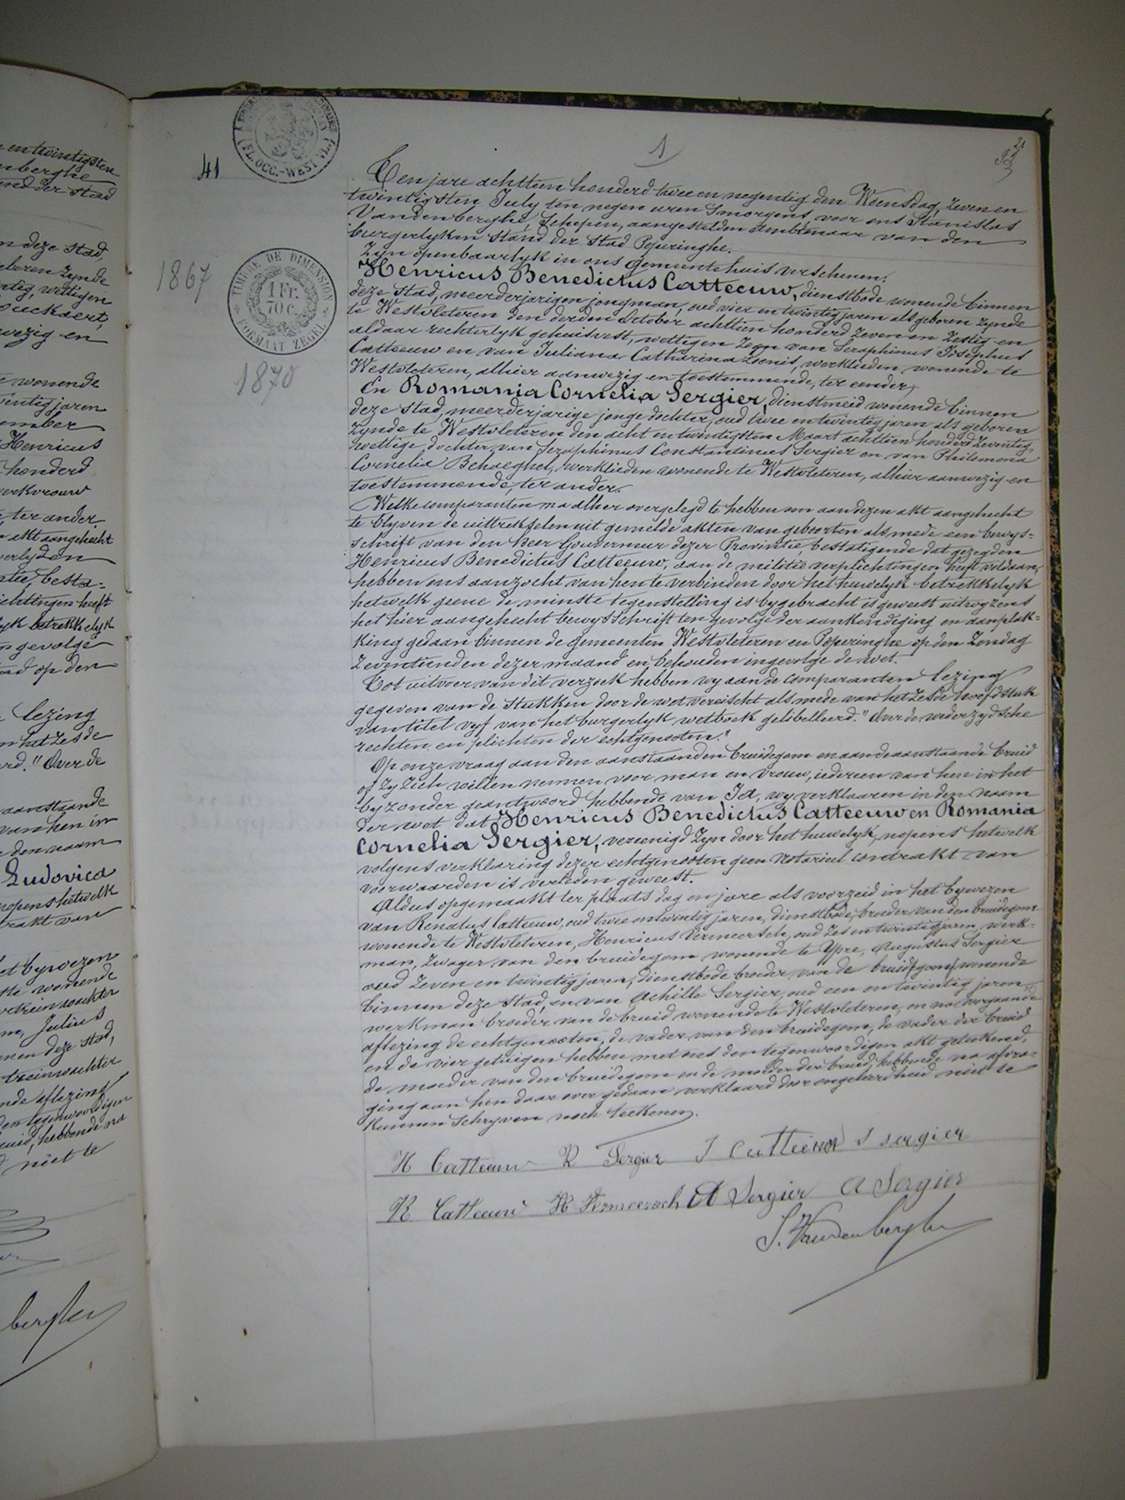 en twintigsten
nberghe
nd der stad
n deze stad,
eleren zynde
rtig, wettigen
ouckaert,
wezig en
wonende
entig jaren
ember
Henricus
honderd
werkvrouw
ter ander
akt aangehecht
overlyden
besta-
lichtingen heeft
yk betrekkelyk
n gevolge
ad op den
lezing
n het zesde
erd. "Over de
aanstaande
van hen in
den naam
Ludovica
nopens hetwelk
trakt van
et bywezen
wonende
Julius
men deze stad,
nde aflezing
den tegenwoordigen
ruid, hebbende na
niet te
bergher
41
1
(FL. OCC.-WEST-VL.)
1867
TIMBRE DE DIMENSION
1 FR.
70 C.
FORMAAT ZEGEL
1870
Ten jare achttien honderd twee en negentig den Woensdag, zeven en
twintigsten July ten negen uren 's morgens, voor ons Stanislas
Vandenberghe, Schepen, aangestelden Ambtenaar van den
burgerlyken stand der Stad Poperinghe.
Zyn openbaarlyk in ons Gemeentehuis verschenen:
Henricus Benedictus Catteeuw, dienstbode wonende binnen
deze stad, meerderjarigen jongman, oud vier en twintig jaren als geboren zynde
te Westvleteren den derden October achttien honderd zeven en zestig en
aldaar rechterlyk gehuisvest, wettigen zoon van Seraphinus Josephus
Catteeuw en van Juliana Catharina Leenis, werklieden wonende te
Westvleteren, alhier aanwezig en toestemmende, ter eender,
En Romania Cornelia Sergier, dienstmeid wonende binnen
deze stad, meerderjarige jonge dochter, oud twee en twintig jaren als geboren
zynde te Westvleteren den acht en twintigsten Maart achttien honderd zeventig,
wettige dochter van Seraphinus Constantinus Sergier en van Philomena
Cornelia Behaeghel, werklieden wonende te Westvleteren, alhier aanwezig en
toestemmende, ter ander.
Welke comparanten na alhier overgelegd te hebben om aan dezen akt aangehecht
te blyven de uittrekselen uit gemelde akten van geboorten als mede een bewys-
schrift van den Heer Gouverneur dezer Provintie bestatigende dat gezegden
Henricus Benedictus Catteeuw, aan de militie verplichtingen heeft voldaan,
hebben ons aanzocht van hen te verbinden door het huwelyk betrekkelyk
hetwelk geene de minste tegenstelling is bygebracht geweest uitwyzens
het hier aangehecht bewysschrift ten gevolge der aankondiging en aanplak-
king gedaan binnen de Gemeenten Westvleteren en Poperinghe op den Zondag
zeventienden dezer maand en behouden ingevolge de wet.
Tot uitvoer van dit verzoek hebben wy aan de comparanten lezing
gegeven van de stukken door de wet vereischt als mede van het zesde hoofdstuk
van titel vyf van het burgerlyk wetboek gelibelleerd: "Over de wederzydsche
rechten en plichten der echtgenooten."
Op onze vraag aan den aanstaanden bruidegom en aan de aanstaande bruid
of zy zich willen nemen voor man en vrouw, iedereen van hen in het
byzonder geantwoord hebbende van Ja, wy verklaren in den naam
der wet dat Henricus Benedictus Catteeuw en Romania
Cornelia Sergier, vereenigd zyn door het huwelyk, nopens hetwelk
volgens verklaring dezer echtgenooten geen notarieel contrakt van
voorwaarden is verleden geweest.
Aldus opgemaakt ter plaats dag en jare als voorzeid in het bywezen
van Renatus Catteeuw, oud twee en twintig jaren, dienstbode, broeder van den bruidegom
wonende te Westvleteren, Henricus Vermeersch, oud zes en twintig jaren, werk-
man, zwager van den bruidegom wonende te Ypre, Augustus Sergier
oud zeven en twintig jaren, dienstbode broeder van de bruid wonende
binnen deze stad, en van Achille Sergier, oud een en twintig jaren
werkman broeder van de bruid wonende te Westvleteren, en na voorgaande
aflezing de echtgenooten, de vader van den bruidegom, de vader der bruid
en de vier getuigen hebben met ons den tegenwoordigen akt geteekend,
de moeder van den bruidegom en de moeder der bruid, hebbende na afvra-
ging aan hen daar over gedaan verklaard door ongeleerdheid niet te
kunnen schryven noch teekenen.
H Catteeuw R Sergier S Catteeuw S sergier
R Catteeuw H Vermeersch A Sergier A Sergier
S. Vandenberghe